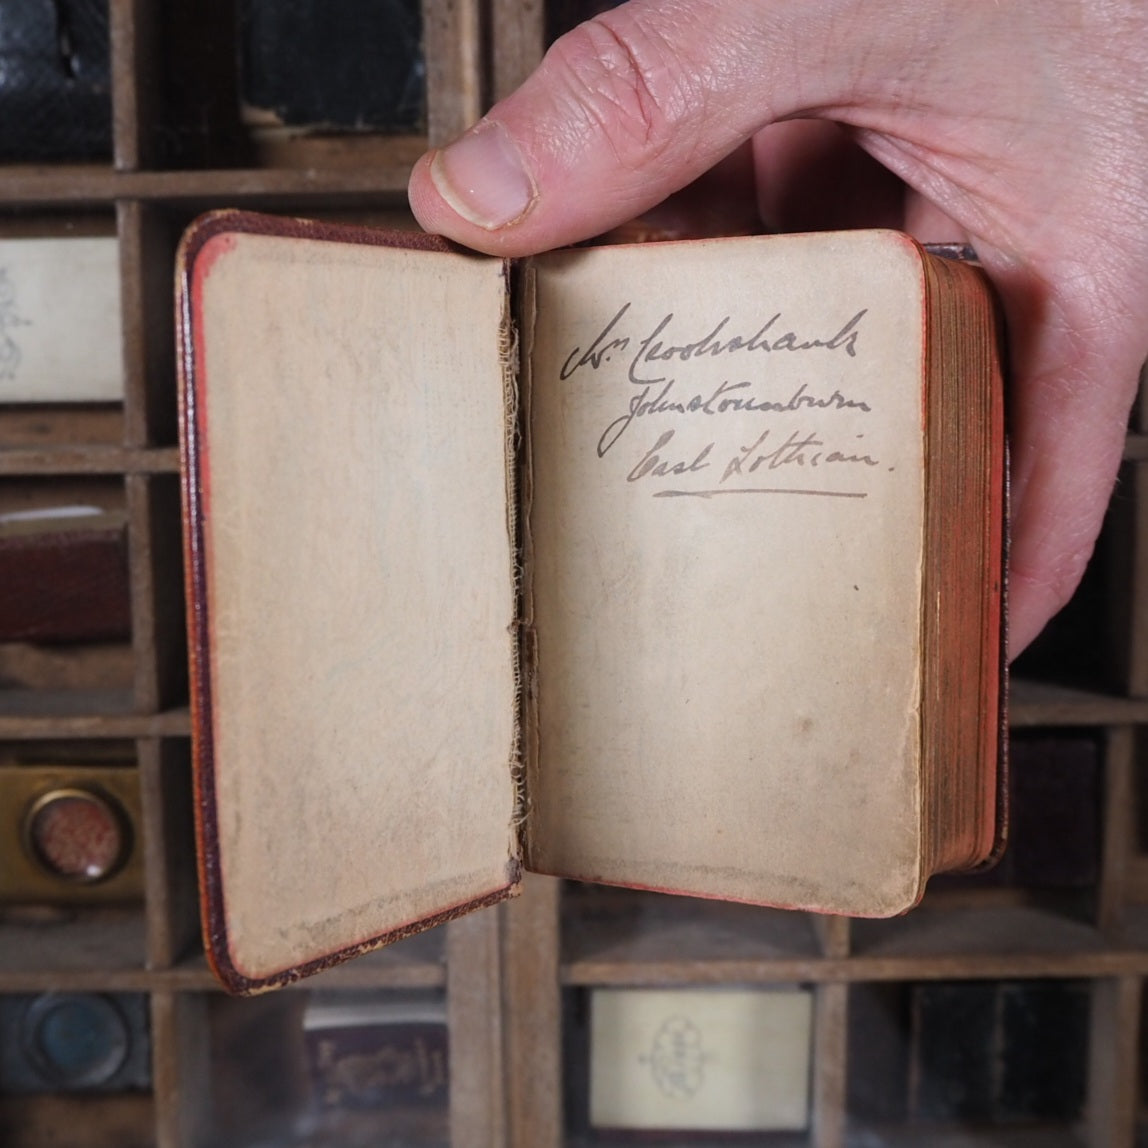 Wm Crookshank
Johnstounburn
East Lothian.